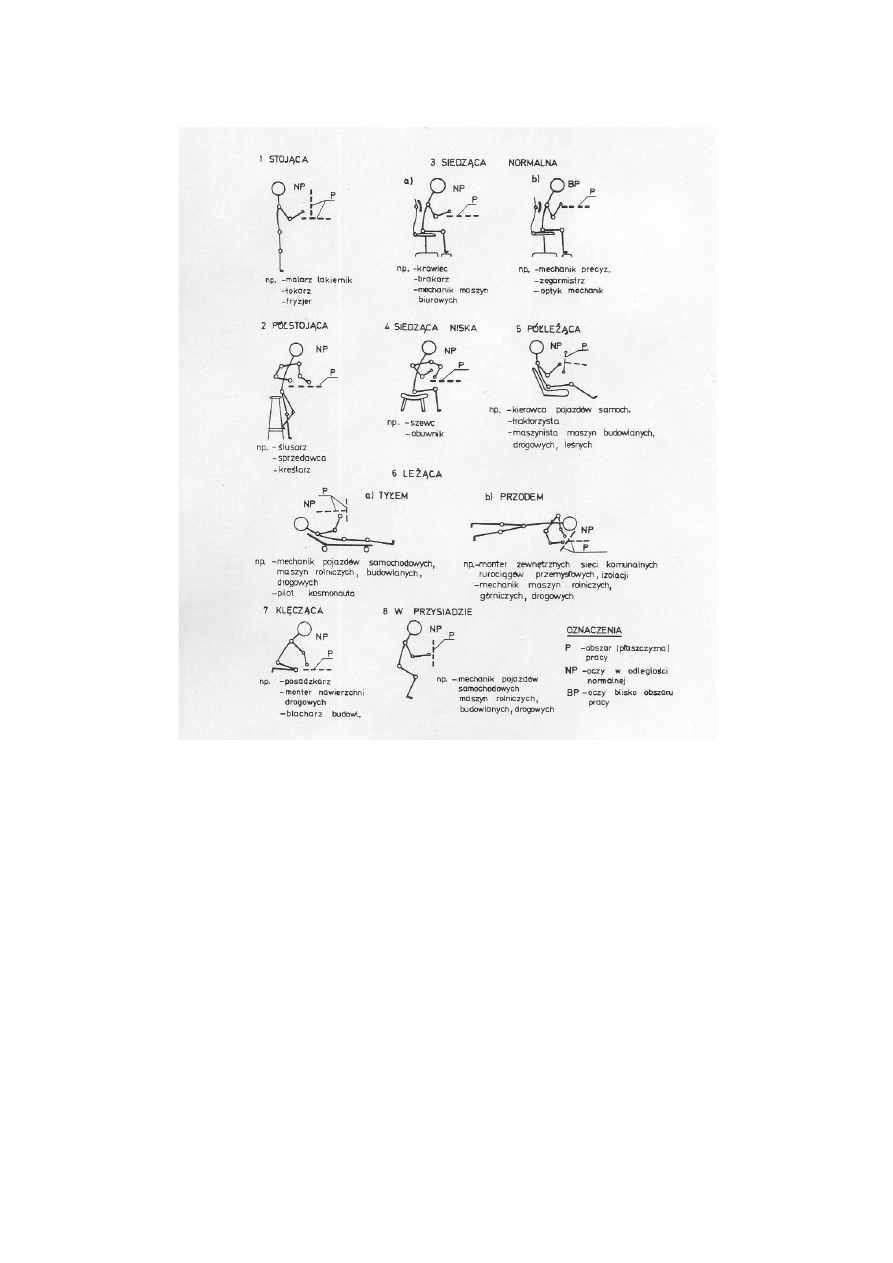 1 STOJĄCA
NP
P
np. -malarz lakiernik
-tokarz
-fryzjer
3 SIEDZĄCA NORMALNA
a)
NP
P
np. -krawiec
-brakarz
-mechanik maszyn
biurowych
b)
BP
P
np. -mechanik precyz.
-zegarmistrz
-optyk mechanik
2 PÓŁSTOJĄCA
NP
P
np. -ślusarz
-sprzedawca
-kreślarz
4 SIEDZĄCA NISKA
NP
P
np. -szewc
-obuwnik
5 PÓŁLEŻĄCA
NP
P
np. -kierowca pojazdów samoch.
-traktorzysta
-maszynista maszyn budowlanych,
drogowych, leśnych
6 LEŻĄCA
a) TYŁEM
P
NP
np. -mechanik pojazdów samochodowych,
maszyn rolniczych, budowlanych,
drogowych
-pilot kosmonauta
b) PRZODEM
NP
P
np.-monter zewnętrznych sieci komunalnych
rurociągów przemysłowych, izolacji
-mechanik maszyn rolniczych,
górniczych, drogowych
7 KLĘCZĄCA
NP
P
np. -posadzkarz
-monter nawierzchni
drogowych
-blacharz budowl.
8 W PRZYSIADZIE
NP
P
np. -mechanik pojazdów
samochodowych
maszyn rolniczych,
budowlanych, drogowych
OZNACZENIA
P -obszar (płaszczyzna)
pracy
NP -oczy w odległości
normalnej
BP -oczy blisko obszaru
pracy